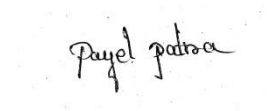 Payel patra